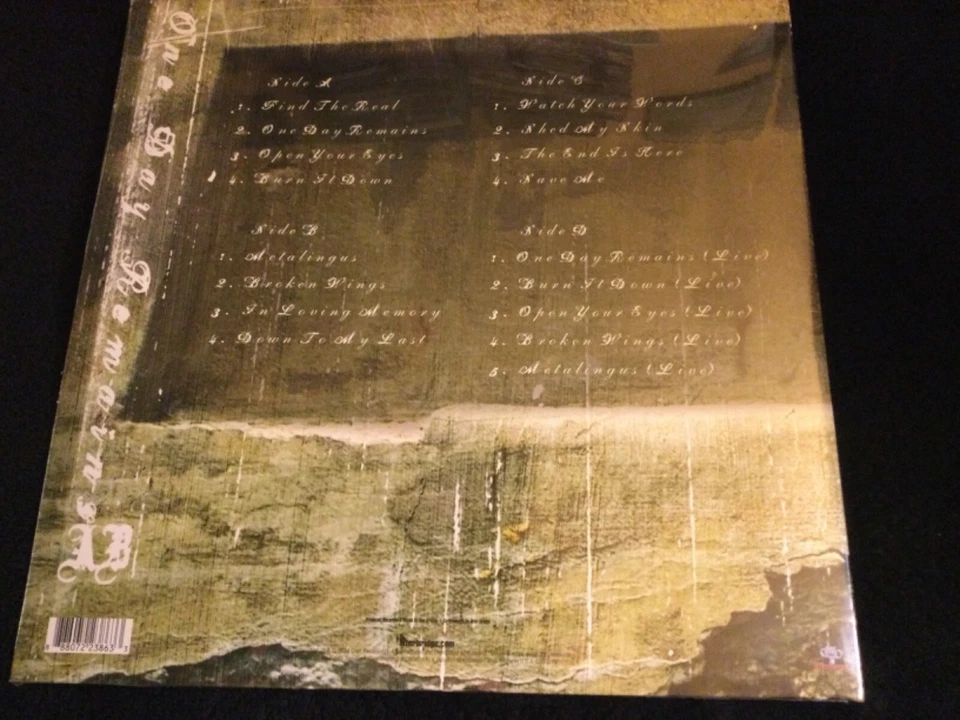 One Day Remains
Side A
1. Find The Real
2. One Day Remains
3. Open Your Eyes
4. Burn It Down
Side B
1. Metalingus
2. Broken Wings
3. In Loving Memory
4. Down To My Last
Side C
1. Watch Your Words
2. Shed My Skin
3. The End Is Here
4. Save Me
Side D
1. One Day Remains (Live)
2. Burn It Down (Live)
3. Open Your Eyes (Live)
4. Broken Wings (Live)
5. Metalingus (Live)
AB
8 88072 23863 3